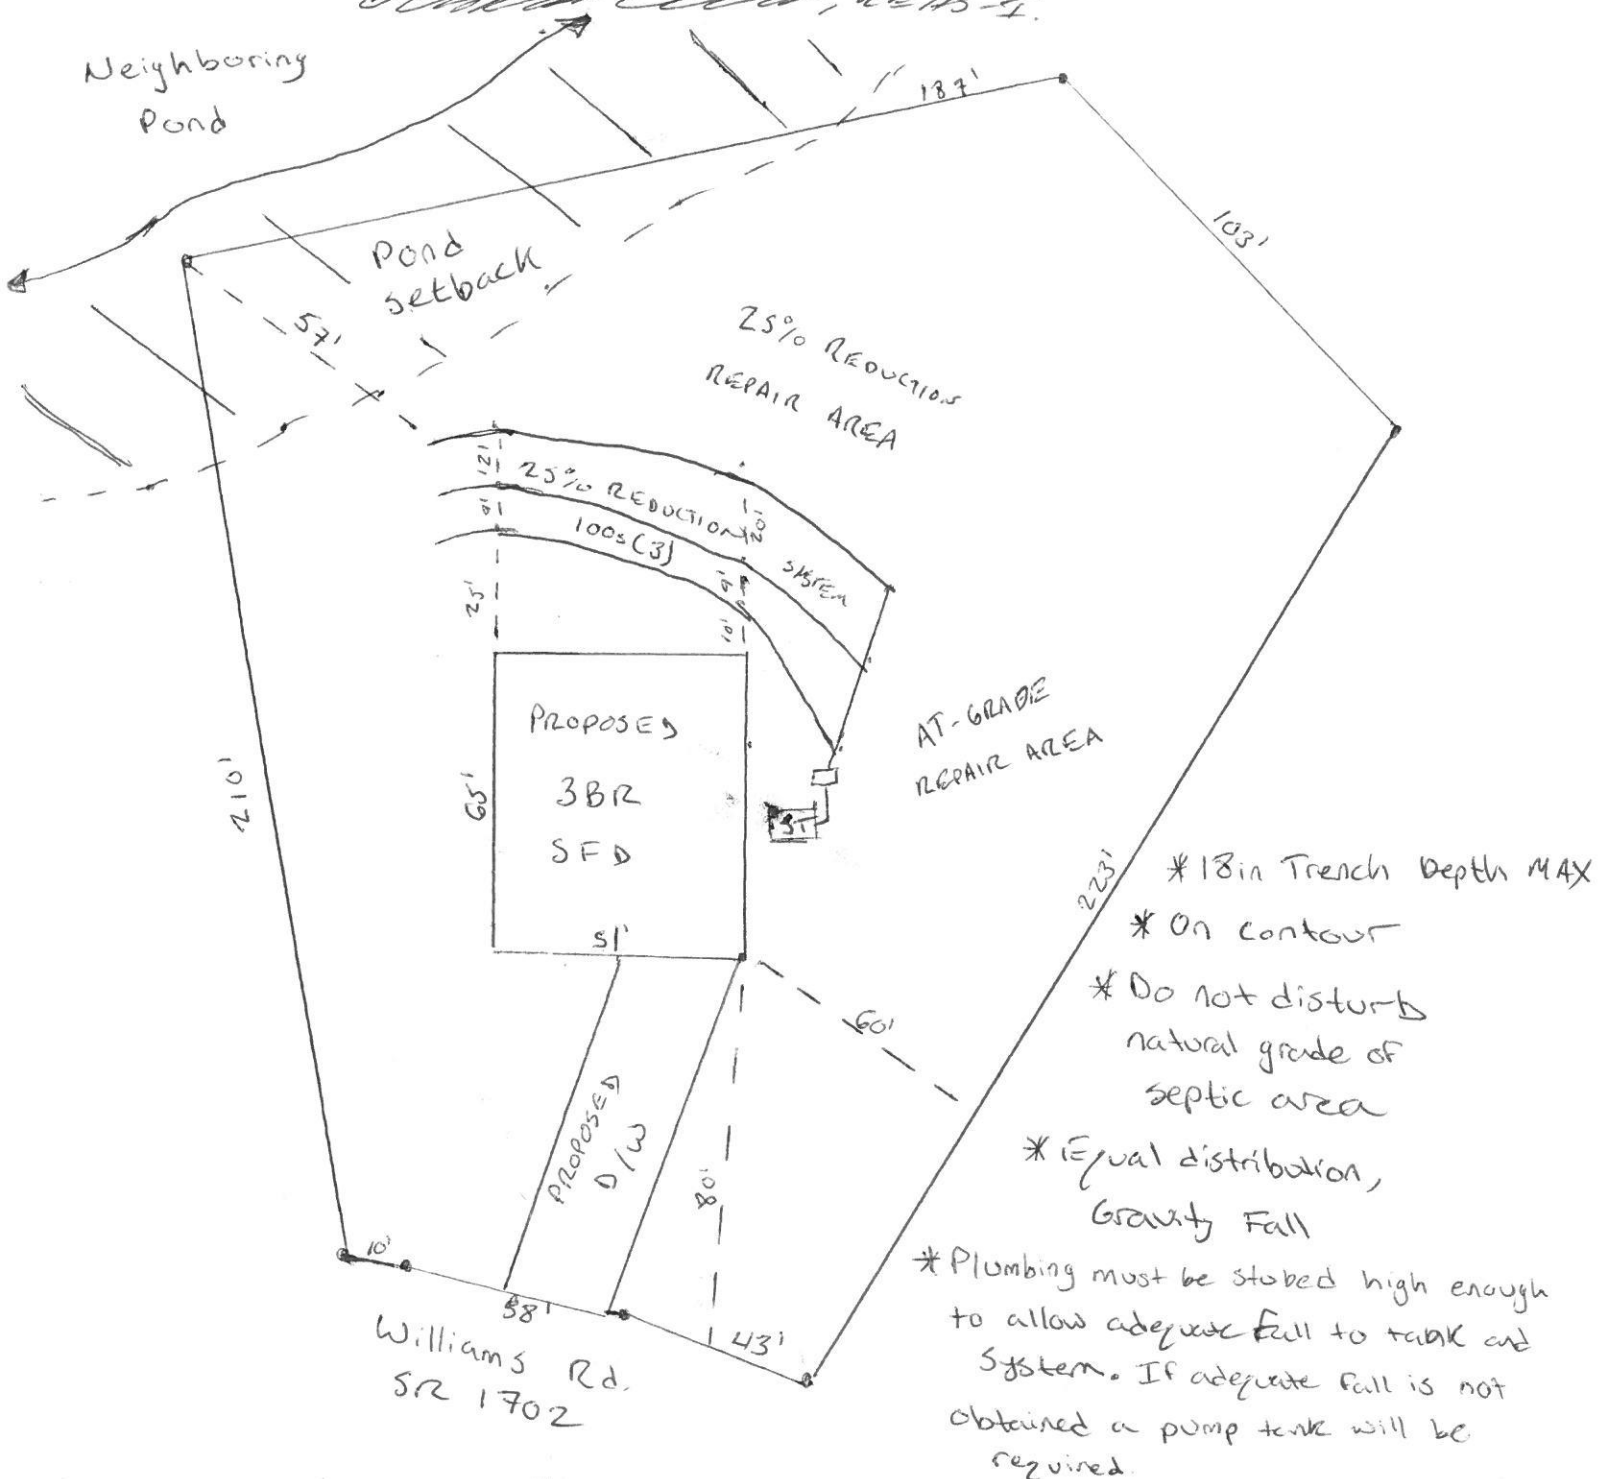 Neighboring
Pond
187'
103'
Pond
setback
57'
25% REDUCTION
REPAIR AREA
12'
25% REDUCTION
SYSTEM
20'
9'
100s(3)
9'
25'
10'
PROPOSED
3BR
SFD
65'
51'
ST
AT-GRADE
REPAIR AREA
210'
223'
60'
PROPOSED
D/W
80'
10'
58'
43'
Williams Rd.
SR 1702
* 18in Trench Depth MAX
* On contour
* Do not disturb
natural grade of
septic area
* Equal distribution,
Gravity Fall
* Plumbing must be stubed high enough
to allow adequate fall to tank and
System. If adequate fall is not
obtained a pump tank will be
required.